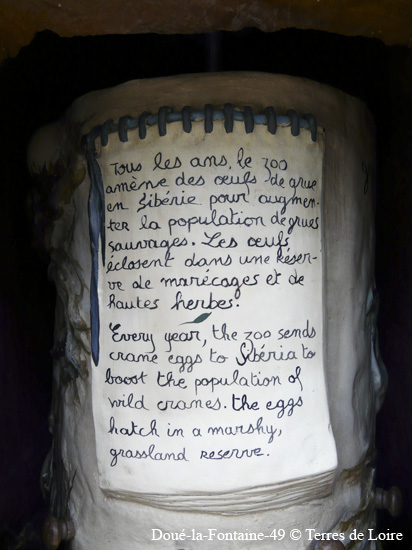 Tous les ans, le zoo
amène des oeufs de grue
en Sibérie pour augmen-
ter la population de grues
sauvages. Les oeufs
éclosent dans une Réser-
ve de marécages et de
hautes herbes.
Every year, the zoo sends
crane eggs to Sibéria to
boost the population of
wild cranes. the eggs
hatch in a marshy,
grassland reserve.
Doué-la-Fontaine-49 © Terres de Loire